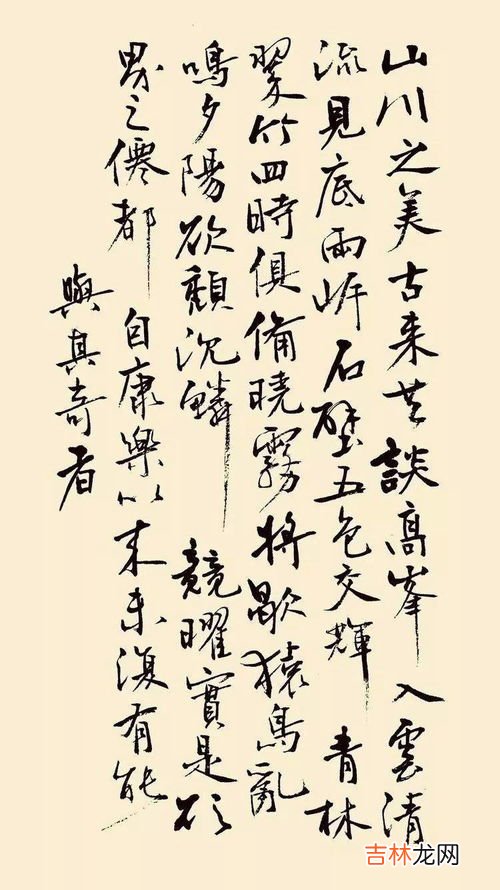 山川之美古来共談高峯入雲清
流見底兩岸石壁五色交輝青林
翠竹四時俱備曉霧將歇猿鳥亂
鳴夕陽欲頹沉鱗競曜實是欲
界之僊都自康樂以来未復有能
與其奇者
吉林龙网